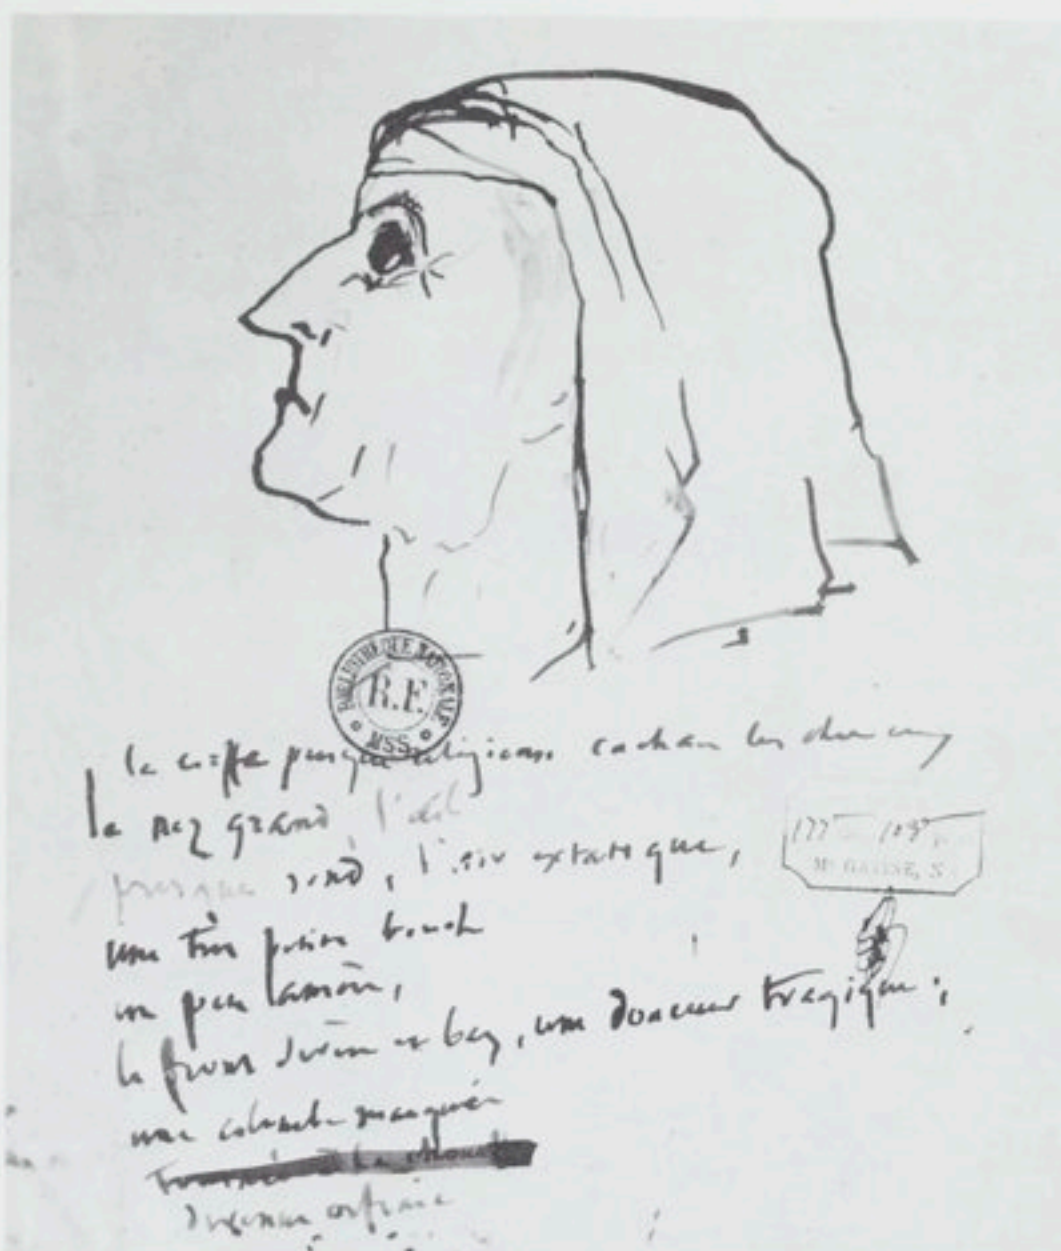 BIBLIOTHÈQUE NATIONALE
R.F.
MSS
la coiffe presque religieuse cachant les cheveux
le nez grand, l'œil
presque rond, l'air extatique,
une très petite bouche
un peu amère,
le front et bas, une douceur tragique;
une colombe manquée
la chouette
devenue orfraie
Me GATINE, N.